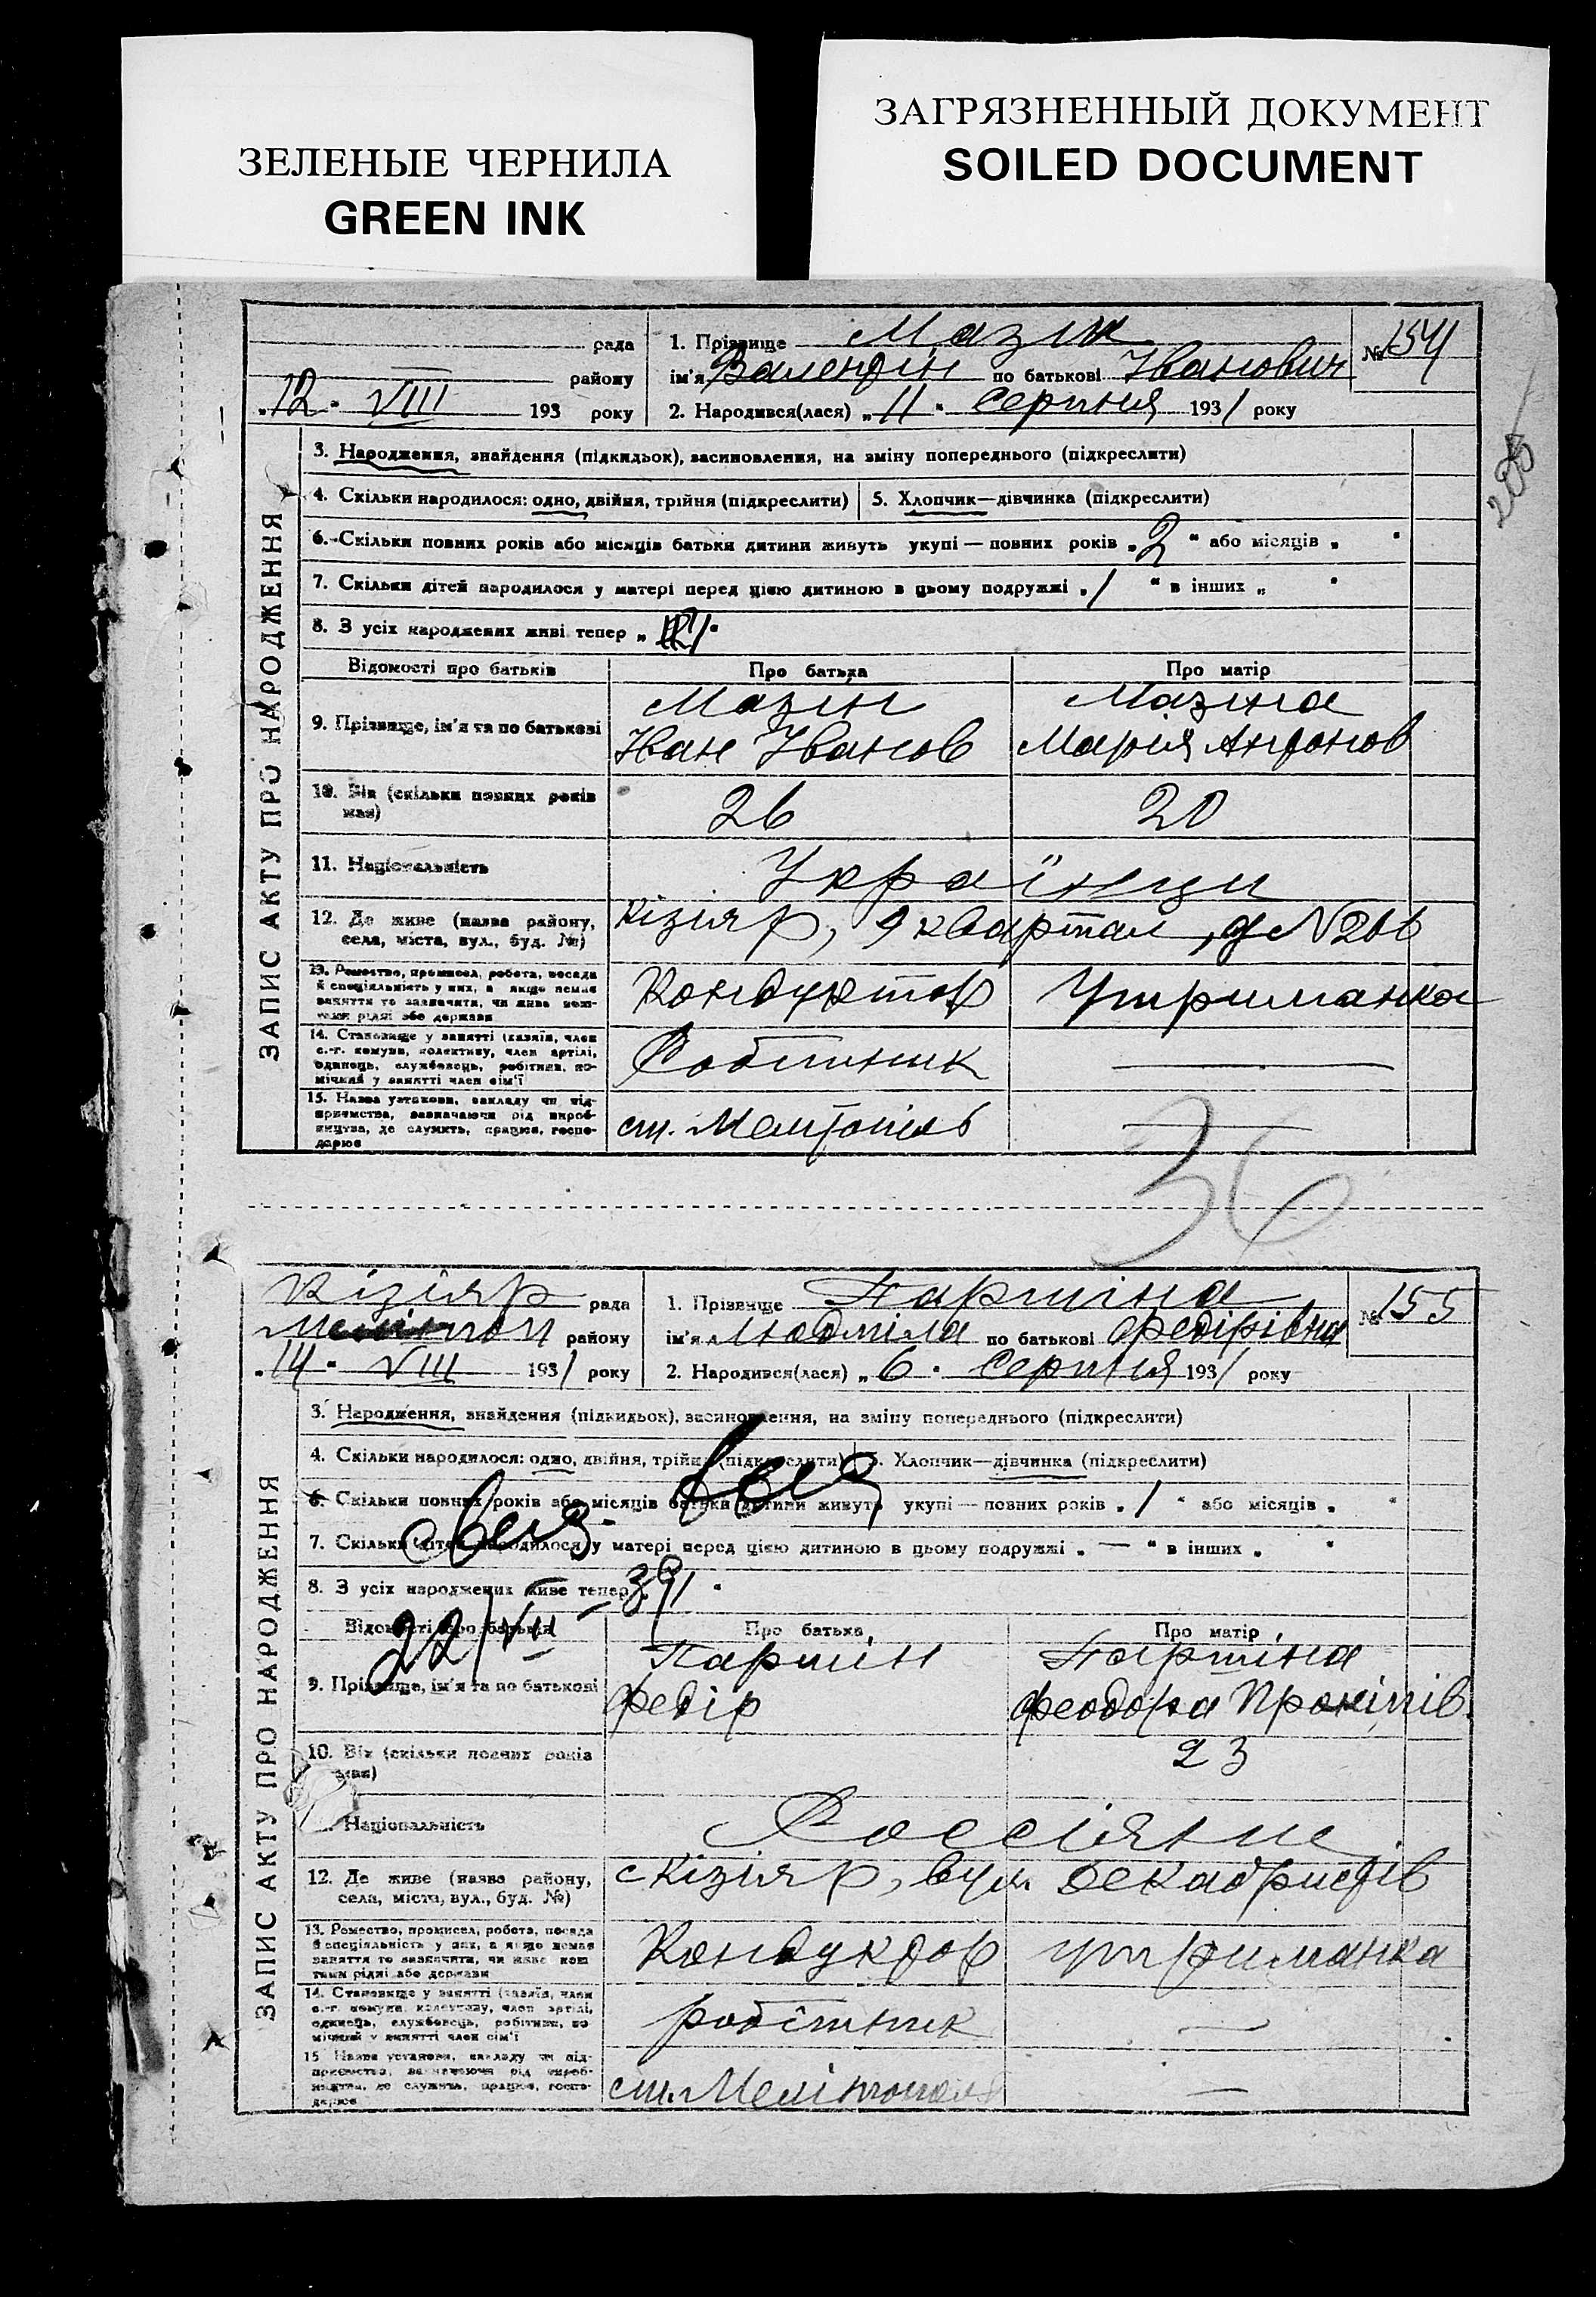 ЗЕЛЕНЫЕ ЧЕРНИЛА
GREEN INK
ЗАГРЯЗНЕННЫЙ ДОКУМЕНТ
SOILED DOCUMENT
рада
району
„12“ VIII 193 року
1. Прізвище Мазін
ім'я Валентін по батькові Іванович
2. Народився(лася) „11“ Серпня 1931 року
№ 154
203
ЗАПИС АКТУ ПРО НАРОДЖЕННЯ
3. Народження, знайдення (підкидьок), засиновлення, на зміну попереднього (підкреслити)
4. Скільки народилося: одно, двійня, трійня (підкреслити)
5. Хлопчик—дівчинка (підкреслити)
6. Скільки повних років або місяців батьки дитини живуть укупі — повних років „2“ або місяців „ “
7. Скільки дітей народилося у матері перед цією дитиною в цьому подружжі „1“ в інших „ “
8. З усіх народжених живі тепер „
Відомості про батьків
Про батька
Про матір
9. Прізвище, ім'я та по батькові
Мазін
Іван Іванов
Мазіна
Марія Антонов
10. Вік (скільки повних років має)
26
20
11. Національність
Українци
12. Де живе (назва району,
села, міста, вул., буд. №)
Кізіяр, 9 квартал, д N206
13. Ремество, промисел, робота, посада
й спеціяльність у них, а якщо немає
заняття то зазначити, чи живе кош-
тами рідні або держави
Кондуктор
Утриманка
14. Становище у занятті (хазяїн, член
с.-г. комуни, колективу, член артілі,
одинець, службовець, робітник, по-
мічний у занятті член сім'ї
Робітник
15. Назва установи, закладу чи під-
приємства, зазначаючи рід вироб-
ництва, де служить, працює, госпо-
дарює
ст. Мелітопіль
36
Кізіяр рада
району
„14“ VIII 1931 року
1. Прізвище Паршіна
ім'я Людміла по батькові Федірівна
2. Народився(лася) „6“ Серпня 1931 року
№ 155
ЗАПИС АКТУ ПРО НАРОДЖЕННЯ
3. Народження, знайдення (підкидьок), засиновлення, на зміну попереднього (підкреслити)
4. Скільки народилося: одно, двійня, трійня (підкреслити)
5. Хлопчик—дівчинка (підкреслити)
6. Скільки повних років або місяців батьки дитини живуть укупі — повних років „1“ або місяців „ “
7. Скільки дітей народилося у матері перед цією дитиною в цьому подружжі „—“ в інших „ “
8. З усіх народжених живе тепер
22/VII
Відомості про батьків
Про батька
Про матір
9. Прізвище, ім'я та по батькові
Паршін
Федір
Паршіна
Феодора Прокіпів.
10. Вік (скільки повних років має)
23
Національність
Россіяни
12. Де живе (назва району,
села, міста, вул., буд. №)
с Кізіяр, вул. Декабристів
13. Ремество, промисел, робота, посада
й спеціяльність у них, а якщо немає
заняття то зазначити, чи живе кош
тами рідні або держави
Кондуктор
утриманка
14. Становище у занятті (хазяїн, член
с.-г. комуни, колективу, член артілі,
одинець, службовець, робітник, по
мічний у занятті член сім'ї
робітник
15 Назва установи, закладу чи під-
приємства, зазначаючи рід вироб-
ництва, де служить, працює, госпо-
дарює
ст. Мелітополь